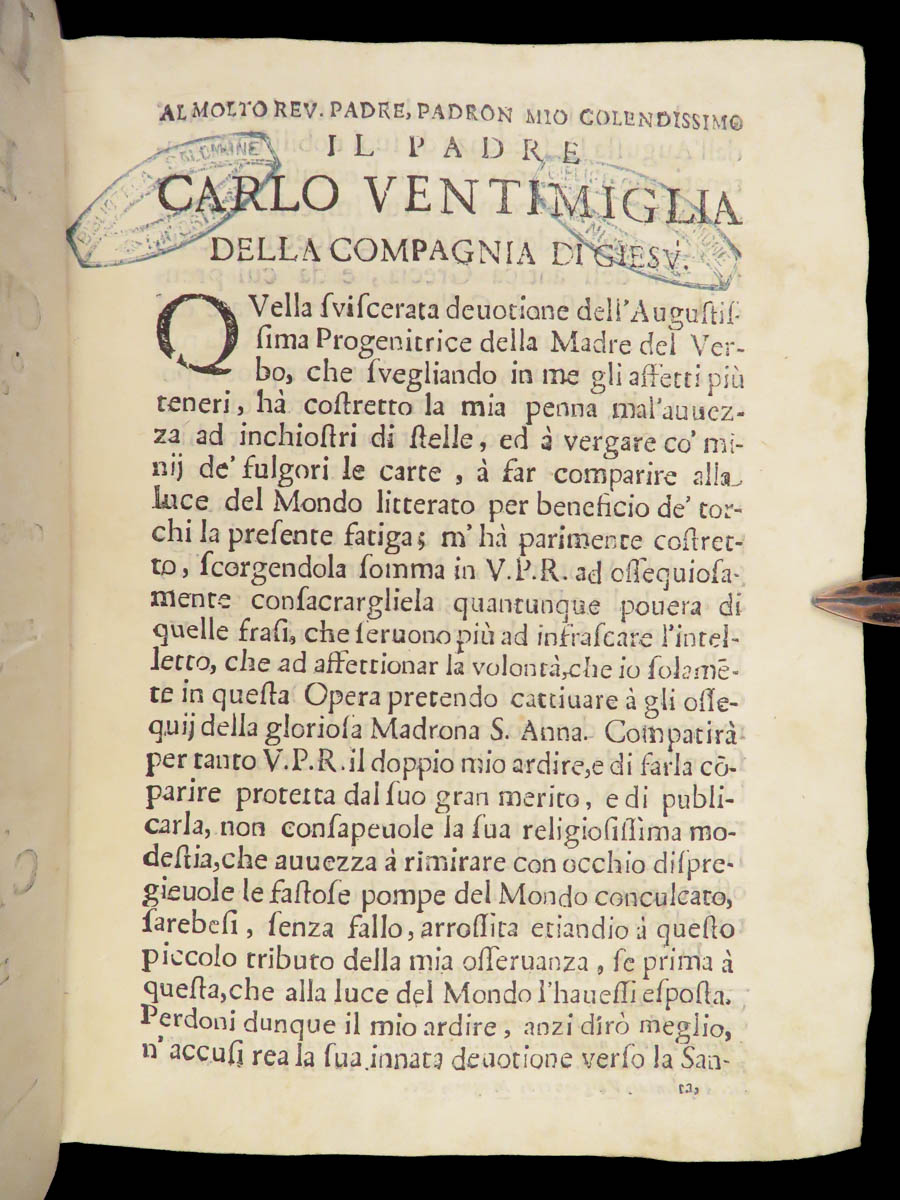 AL MOLTO REV. PADRE, PADRON MIO COLENDISSIMO
IL PADRE
CARLO VENTIMIGLIA
DELLA COMPAGNIA DI GIESV.
QVella ſviſcerata deuotione dell'Auguſtiſ-
ſima Progenitrice della Madre del Ver-
bo, che ſvegliando in me gli affetti più
teneri, hà coſtretto la mia penna mal'auuez-
za ad inchioſtri di ſtelle, ed à vergare co' mi-
nij de' fulgori le carte, à far comparire alla
luce del Mondo litterato per beneficio de' tor-
chi la preſente fatiga; m'hà parimente coſtret-
to, ſcorgendola ſomma in V.P.R. ad oſſequioſa-
mente conſacrargliela quantunque pouera di
quelle fraſi, che ſeruono più ad infraſcare l'intel-
letto, che ad affettionar la volontà, che io ſolamē-
te in queſta Opera pretendo cattiuare à gli oſſe-
quij della glorioſa Madrona S. Anna. Compatirà
per tanto V.P.R. il doppio mio ardire, e di farla cō-
parire protetta dal ſuo gran merito, e di publi-
carla, non conſapeuole la ſua religioſiſſima mo-
deſtia, che auuezza à rimirare con occhio diſpre-
gieuole le faſtoſe pompe del Mondo conculcato,
ſarebeſi, ſenza fallo, arroſſita etiandio à queſto
piccolo tributo della mia oſſeruanza, ſe prima à
queſta, che alla luce del Mondo l'haueſſi eſpoſta.
Perdoni dunque il mio ardire, anzi dirò meglio,
n'accuſi rea la ſua innata deuotione verſo la San-
ta,
BIBLIOTECA SALOMONE